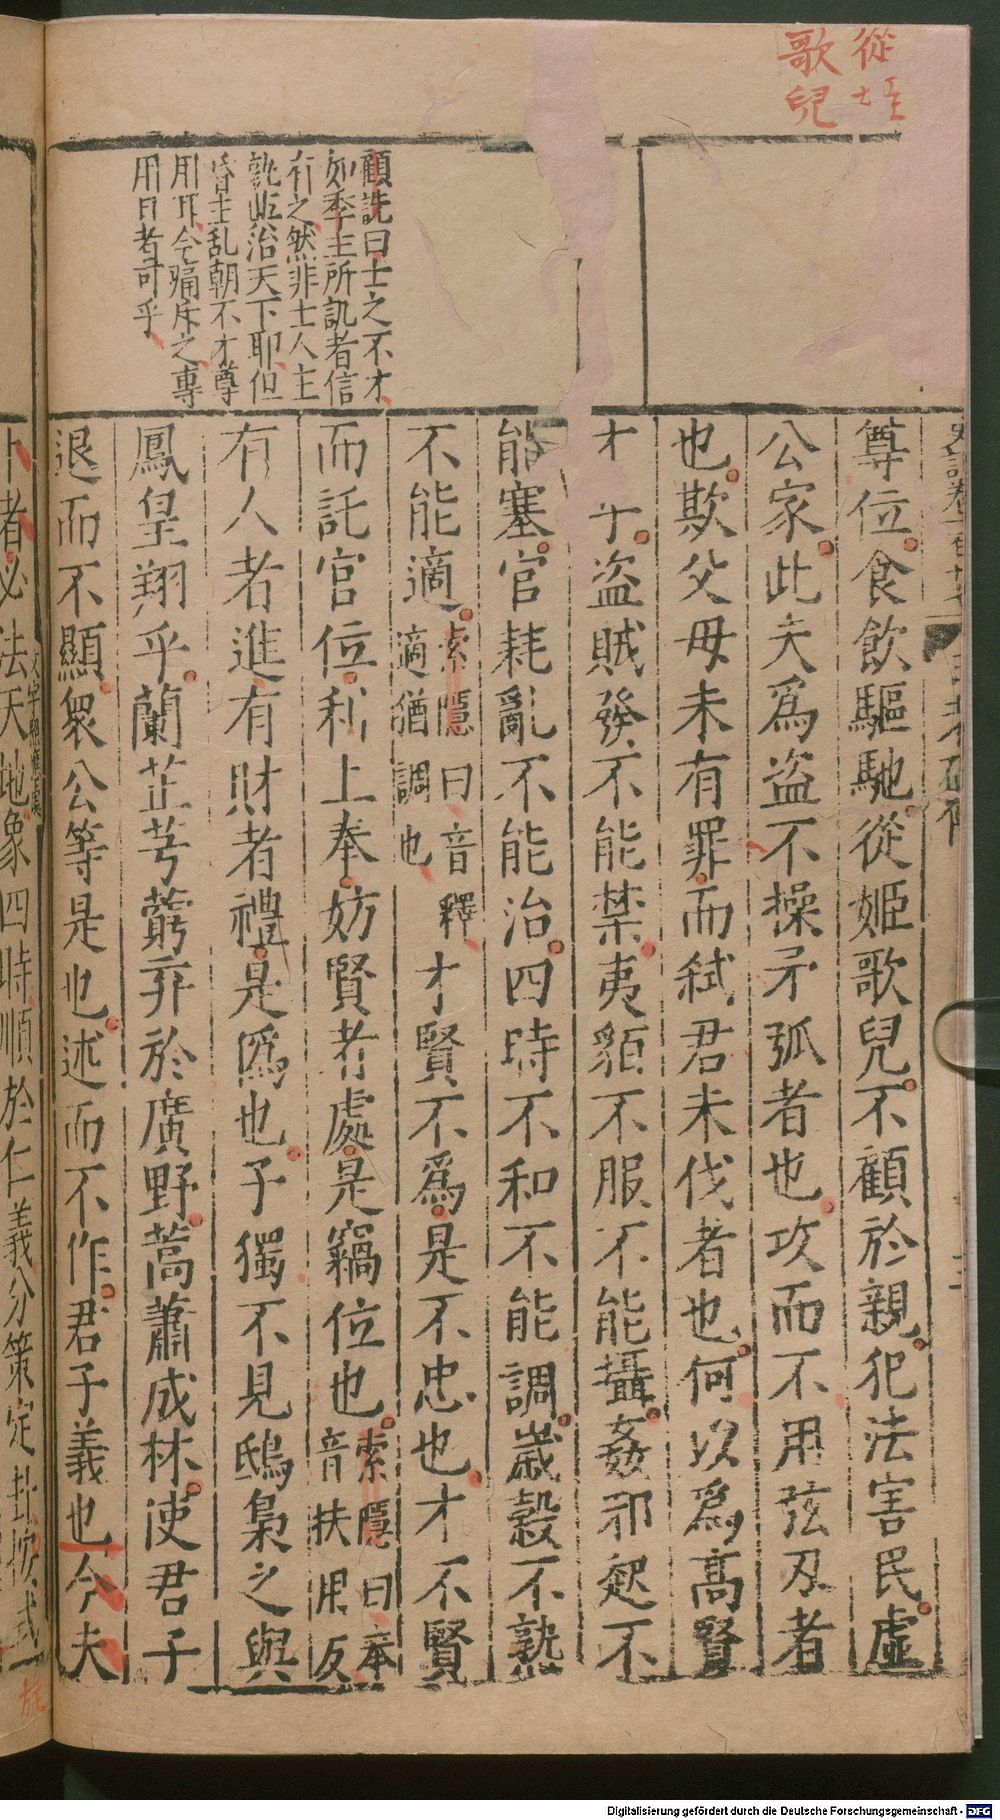 從姪
歌兒
尊位食飲驅馳從姬歌兒不顧於親犯法害民虛
公家此夫爲盜不操矛弧者也攻而不用弦刃者
也欺父母未有罪而弑君未伐者也何以爲高賢
才乎盜賊發不能禁夷貊不服不能攝姦邪起不
能塞官耗亂不能治四時不和不能調歲穀不熟
不能適索隱曰音釋適猶調也才賢不爲是不忠也才不賢
而託官位利上奉妨賢者處是竊位也索隱曰奉音扶用反
有人者進有財者禮是僞也子獨不見鴟梟之與
鳳皇翔乎蘭芷芎藭弃於廣野蒿蕭成林使君子
退而不顯衆公等是也述而不作君子義也今夫
顧詵曰士之不才
如季主所譏者信
有之然非士人主
孰與治天下耶但
昏主乱朝不才尊
用耳今痛斥之專
用日者可乎
卜者必法天地象四時順於仁義分策定卦按式
Digitalisierung gefördert durch die Deutsche Forschungsgemeinschaft - DFG